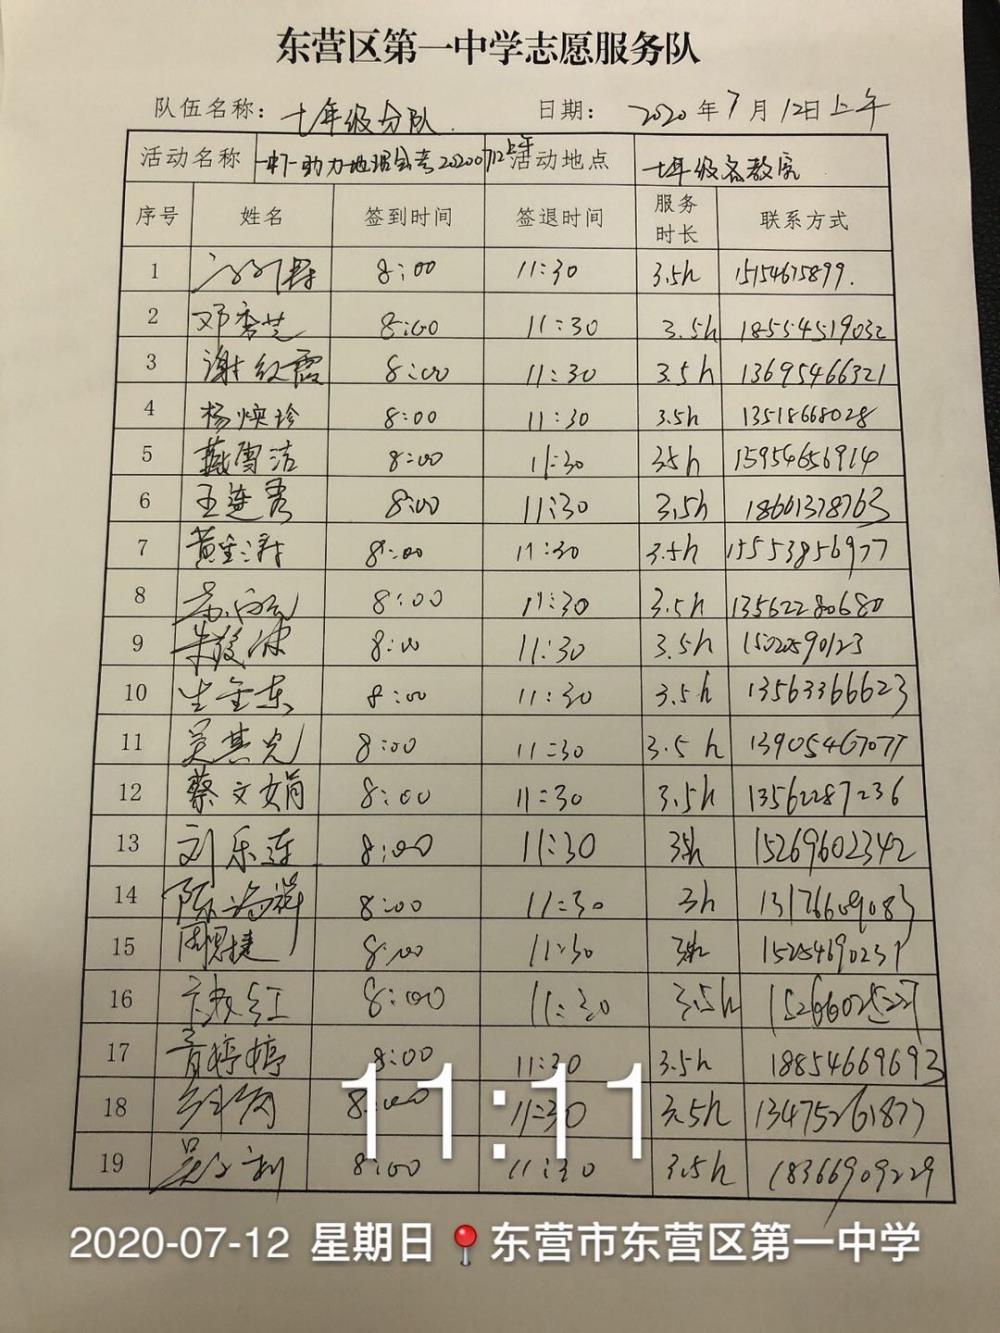 东营区第一中学志愿服务队
队伍名称: 七年级分队 日期: 2020年7月12日上午
活动名称 一中助力地理会考20200712上午 活动地点 七年级各教室
序号 姓名 签到时间 签退时间 服务时长 联系方式
1 8:00 11:30 3.5h 15154675899.
2 邓秀芝 8:00 11:30 3.5h 18554519032
3 谢红霞 8:00 11:30 3.5h 13695466321
4 杨焕珍 8:00 11:30 3.5h 13518668028
5 戴雪洁 8:00 11:30 3.5h 15954656914
6 王连秀 8:00 11:30 3.5h 18661378763
7 8:00 11:30 3.5h 15553856977
8 8:00 11:30 3.5h 13562280680
9 8:00 11:30 3.5h
10 8:00 11:30 3.5h 13563366623
11 吴其光 8:00 11:30 3.5h 13905467077
12 蔡文娟 8:00 11:30 3.5h 13562287236
13 刘乐莲 8:00 11:30 15269602342
14 8:00 11:30 3h 13176609083
15 8:00 11:30 15254690231
16 8:00 11:30 3.5h
17 8:00 11:30 3.5h 18854669693
18 8:00 11:30 3.5h 13475261877
19 8:00 11:30 3.5h 18366909229
11:11
2020-07-12 星期日 东营市东营区第一中学